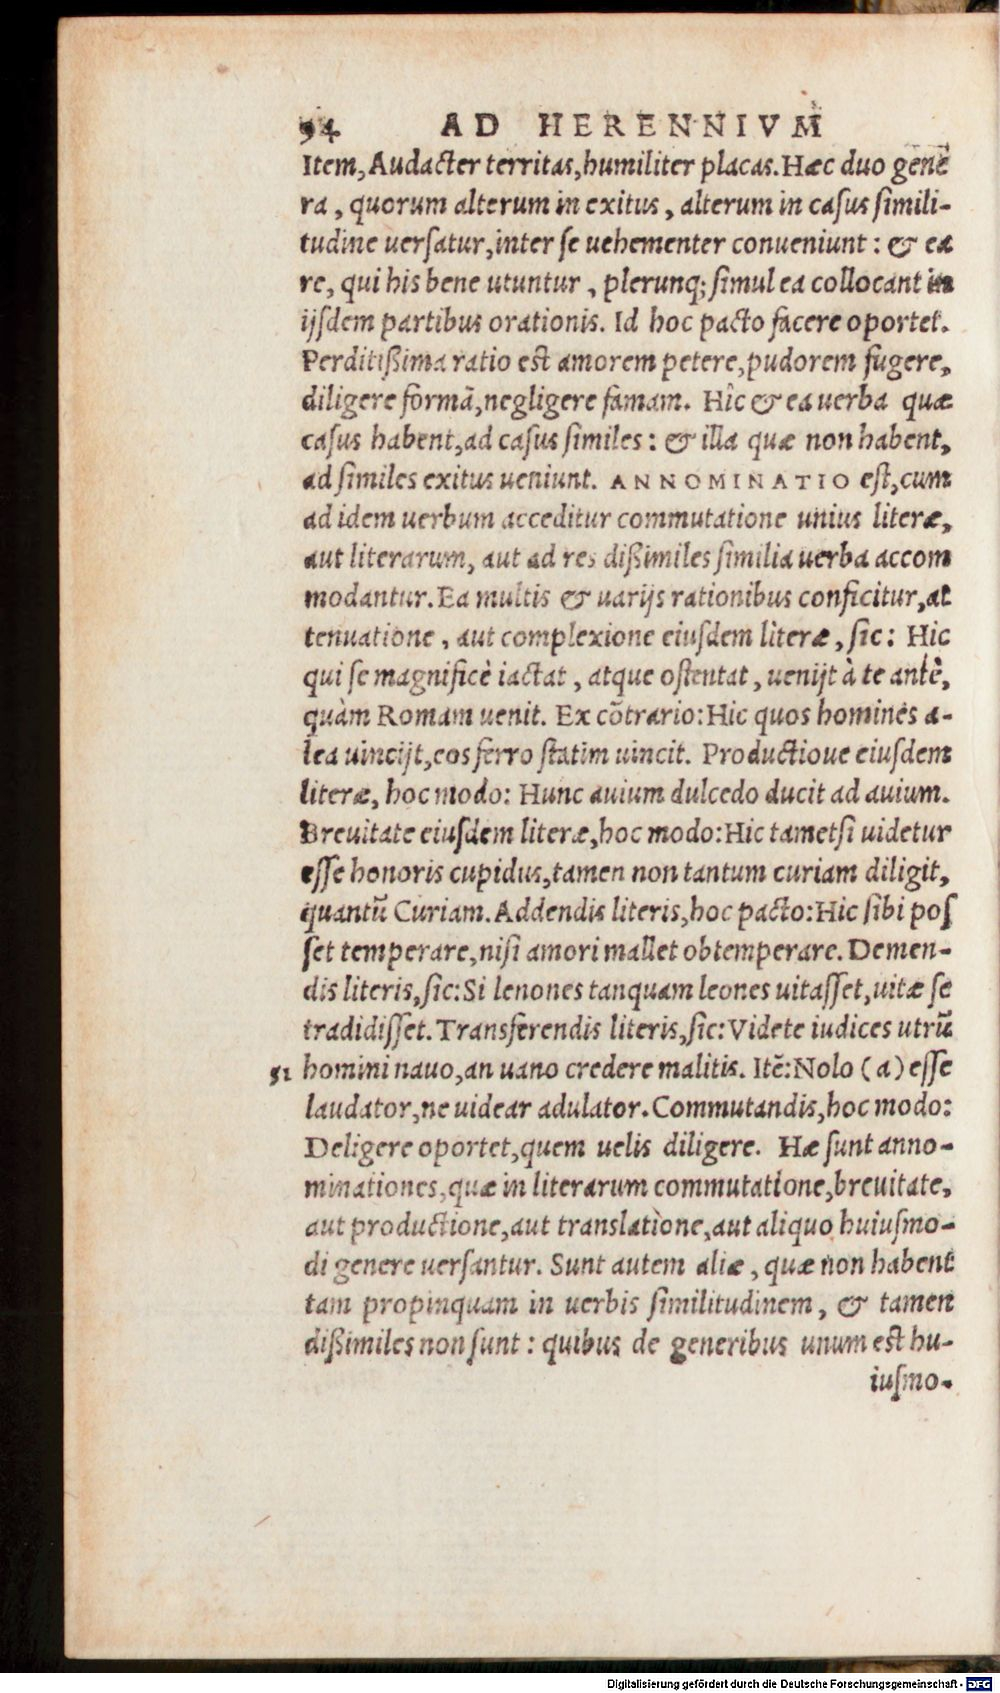 94 AD HERENNIVM
Item, Audacter territas, humiliter placas. Hæc duo gene
ra, quorum alterum in exitus, alterum in casus simili-
tudine uersatur, inter se uehementer conueniunt: & ea
re, qui his bene utuntur, plerunq; simul ea collocant in
ijsdem partibus orationis. Id hoc pacto facere oportet.
Perditißima ratio est amorem petere, pudorem fugere,
diligere formã, negligere famam. Hîc & ea uerba quæ
casus habent, ad casus similes: & illa quæ non habent,
ad similes exitus ueniunt. ANNOMINATIO est, cum
ad idem uerbum acceditur commutatione unius literæ,
aut literarum, aut ad res dißimiles similia uerba accom
modantur. Ea multis & uarijs rationibus conficitur, at
tenuatione, aut complexione eiusdem literæ, sic: Hic
qui se magnificè iactat, atque ostentat, uenijt à te antè,
quàm Romam uenit. Ex cõtrario: Hic quos homines a-
lea uincijt, eos ferro statim uincit. Productioue eiusdem
literæ, hoc modo: Hunc auium dulcedo ducit ad auium.
Breuitate eiusdem literæ, hoc modo: Hic tametsi uidetur
esse honoris cupidus, tamen non tantum curiam diligit,
quantũ Curiam. Addendis literis, hoc pacto: Hic sibi pos
set temperare, nisi amori mallet obtemperare. Demen-
dis literis, sic: Si lenones tanquam leones uitasset, uitæ se
tradidisset. Transferendis literis, sic: Videte iudices utrũ
51 homini nauo, an uano credere malitis. Itẽ: Nolo (a) esse
laudator, ne uidear adulator. Commutandis, hoc modo:
Deligere oportet, quem uelis diligere. Hæ sunt anno-
minationes, quæ in literarum commutatione, breuitate,
aut productione, aut translatione, aut aliquo huiusmo-
di genere uersantur. Sunt autem aliæ, quæ non habent
tam propinquam in uerbis similitudinem, & tamen
dißimiles non sunt: quibus de generibus unum est hu-
iusmo-
Digitalisierung gefördert durch die Deutsche Forschungsgemeinschaft - DFG